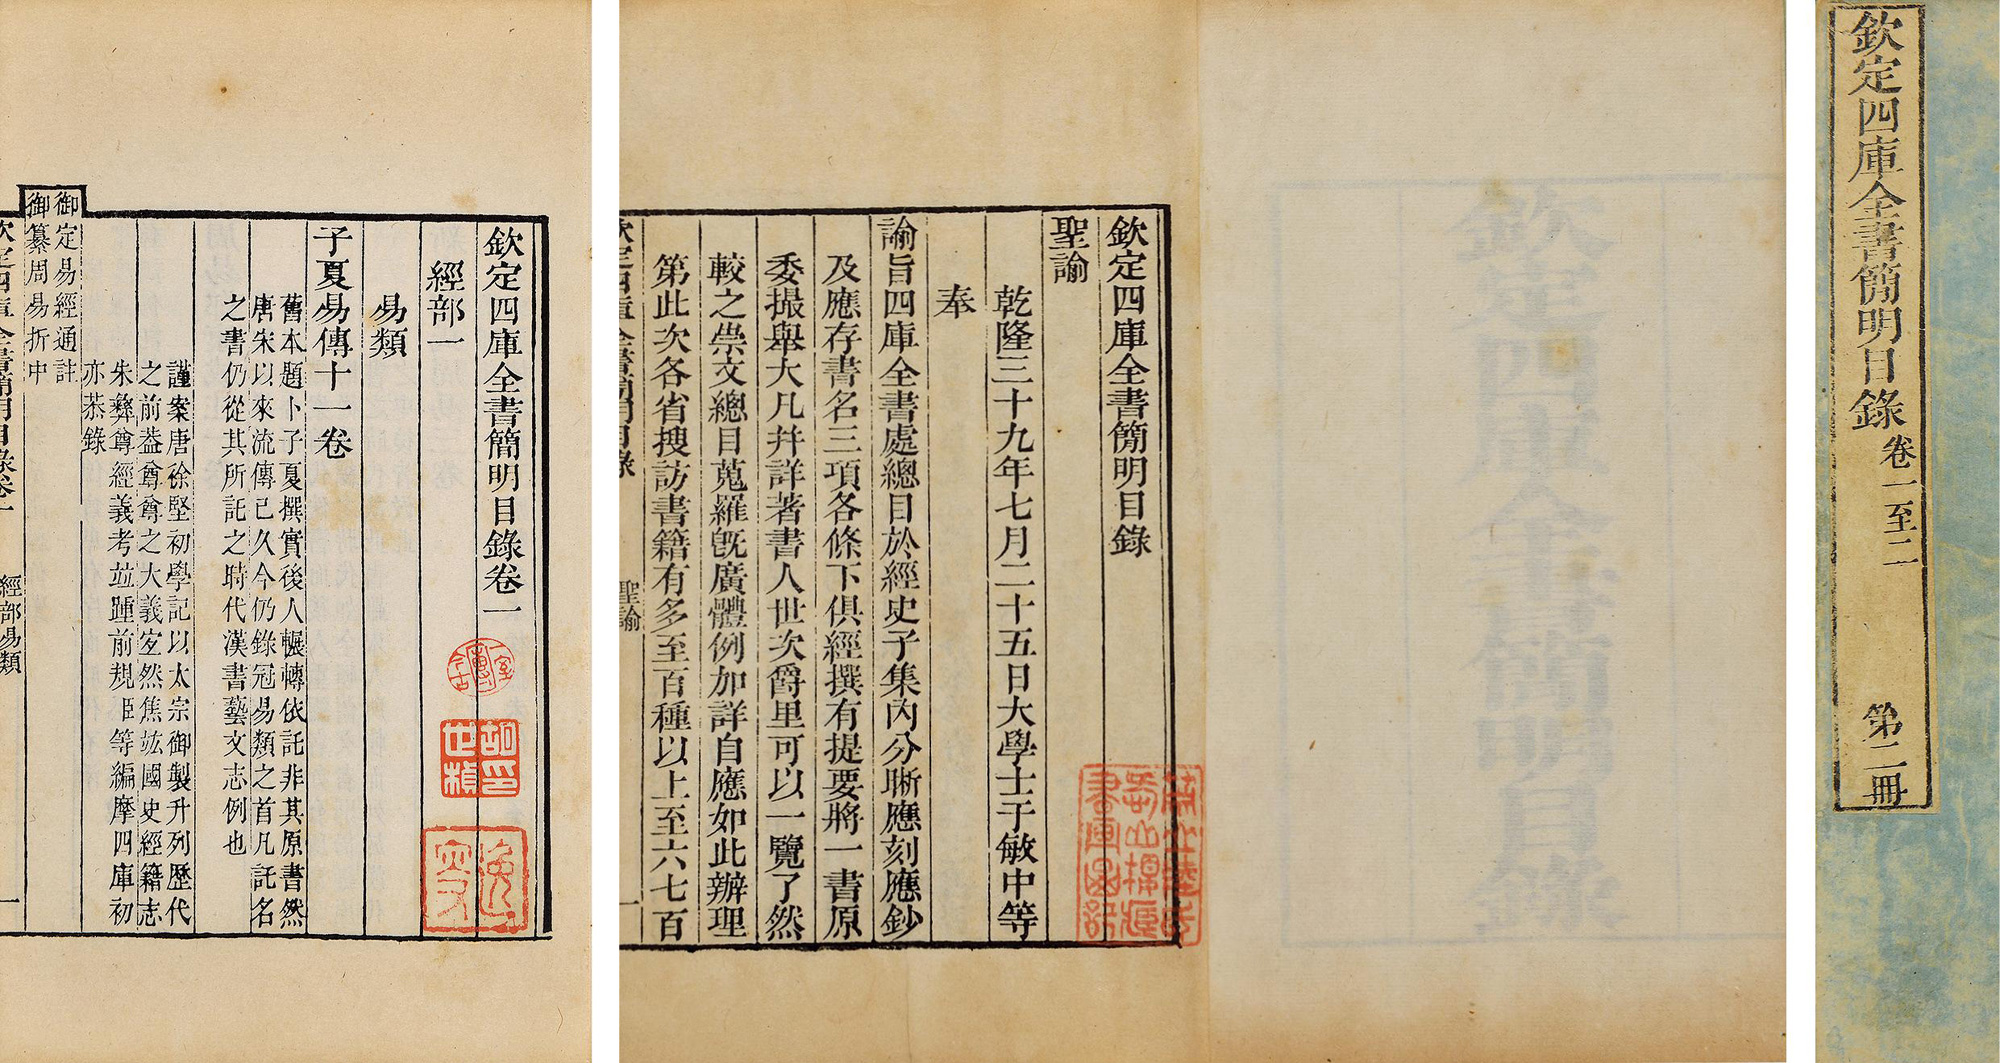 欽定四庫全書簡明目錄 卷一至二 第二冊
欽定四庫全書簡明目錄
聖諭
乾隆三十九年七月二十五日大學士于敏中等
奉
諭旨四庫全書處總目於經史子集內分晰應刻應鈔
及應存書名三項各條下俱經撰有提要將一書原
委撮舉大凡幷詳著書人世次爵里可以一覽了然
較之崇文總目蒐羅旣廣體例加詳自應如此辦理
第此次各省搜訪書籍有多至百種以上至六七百
欽定四庫全書簡明目錄 聖諭 一
欽定四庫全書簡明目錄卷一
經部一
易類
子夏易傳十一卷
舊本題卜子夏撰實後人輾轉依託非其原書然
唐宋以來流傳已久今仍錄冠易類之首凡託名
之書仍從其所託之時代漢書藝文志例也
謹案唐徐堅初學記以太宗御製升列歷代
之前葢尊尊之大義宏然焦竑國史經籍志
朱彝尊經義考竝踵前規臣等編摩四庫初
亦恭錄
御定易經通註
御纂周易折中
欽定四庫全書簡明目錄卷一 經部易類 一
胡印世楨